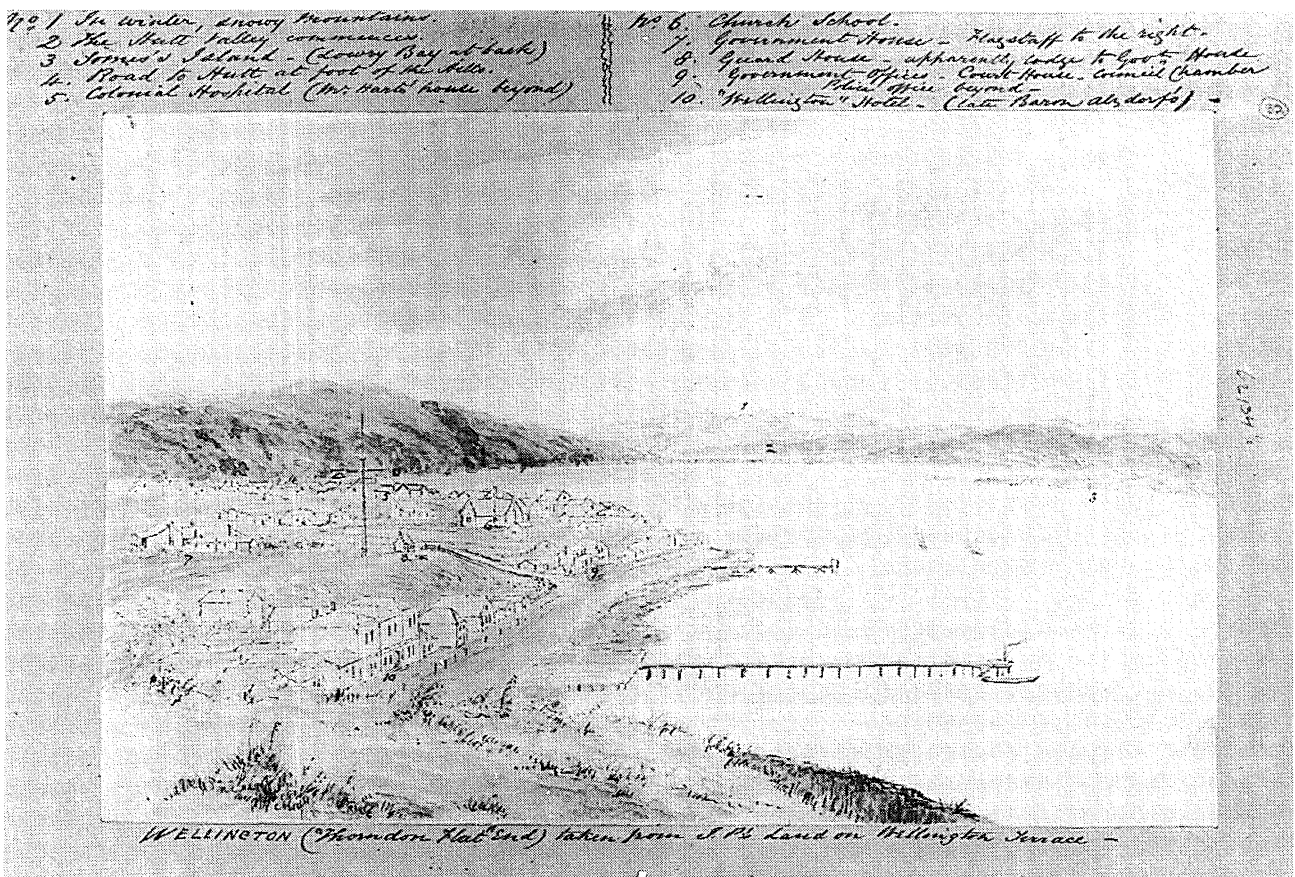 No 1 In winter, snowy mountains.
2 The Hutt Valley commences
3 Somes's Island - (Lowry Bay at back)
4. Road to Hutt at foot of the Hills.
5. Colonial Hospital (Mr Harts' house beyond)
No 6. Church School.
7. Government House - Flagstaff to the right.
8. Guard House - apparently lodge to Govt House
9. Government Offices - Court House - Council Chamber
Police office beyond -
10. "Wellington" Hotel - (late Baron Alzdorf's) -
1
2
3
7
8
9
10
WELLINGTON (Thorndon Flat End) taken from J.P.'s Land on Wellington Terrace -